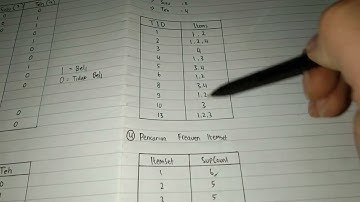 Teh -4
TID Items
1 1,2
2 1,2,4
3 4
4 1,3
5 3,4
6 1,2
8 3,4
9 1,2
10 3
13 1,2,3
1 = Beli
0 = Tidak Beli
4 Pencarian Frequen Itemset
Itemset SupCount
1 6
2 5
3 5
Teh
0